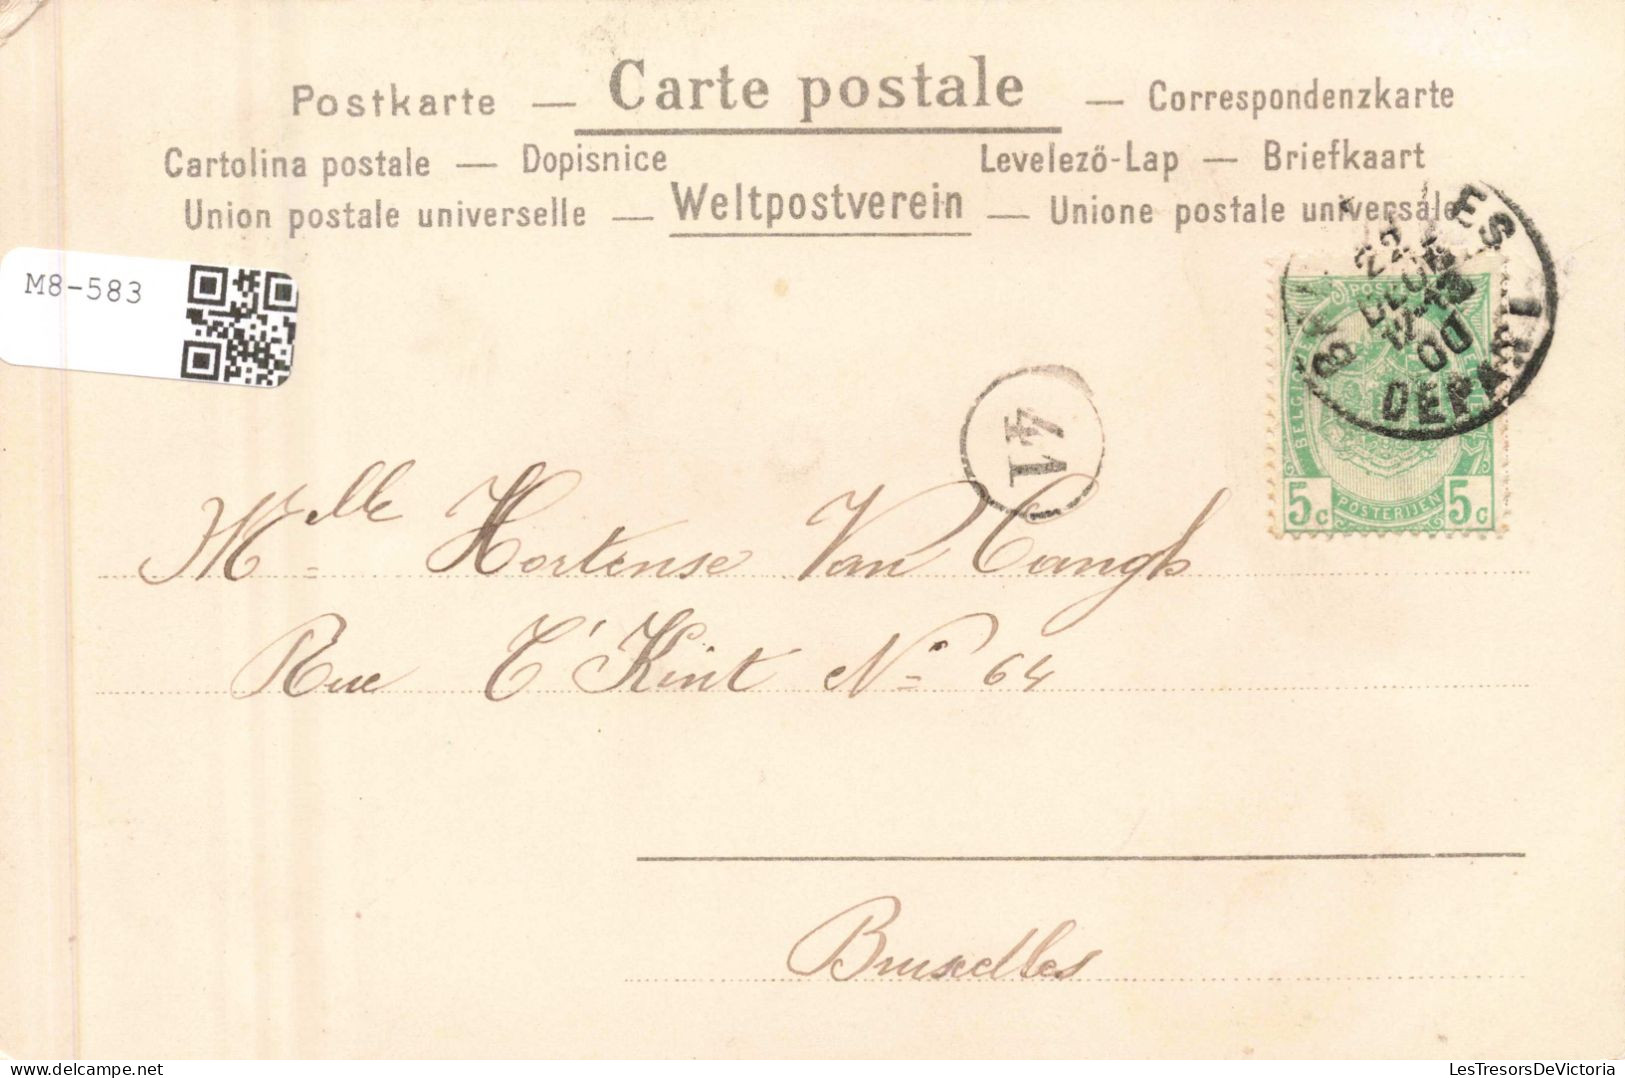 Postkarte — Carte postale — Correspondenzkarte
Cartolina postale — Dopisnice Levelező-Lap — Briefkaart
Union postale universelle — Weltpostverein — Unione postale universale
M8-583
22
00
DEPART
1
41
BELGIQUE
POSTERIJEN
5c 5c
Mlle Hortense Van Cangh
Rue T'Kint No 64
Bruxelles
delcampe.net
LesTresorsDeVictoria